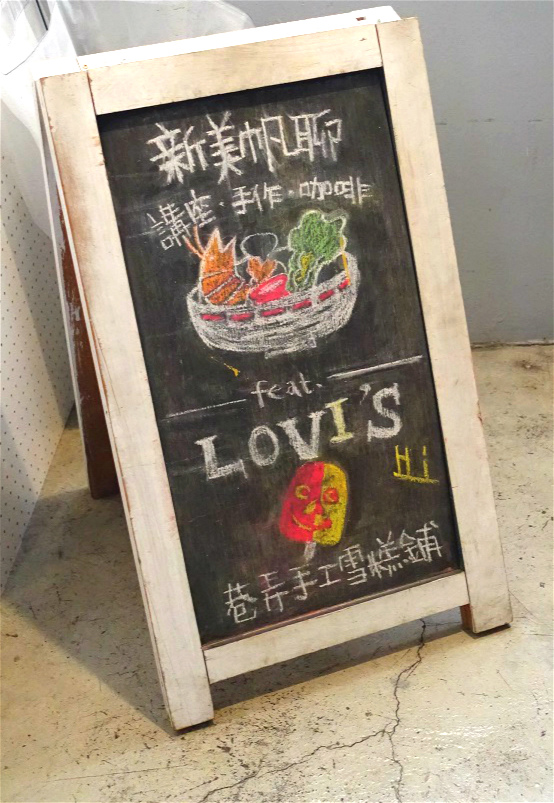 新美帆聊
講座·手作·咖啡
feat.
LOVI'S
Hi
巷弄手工雪糕鋪